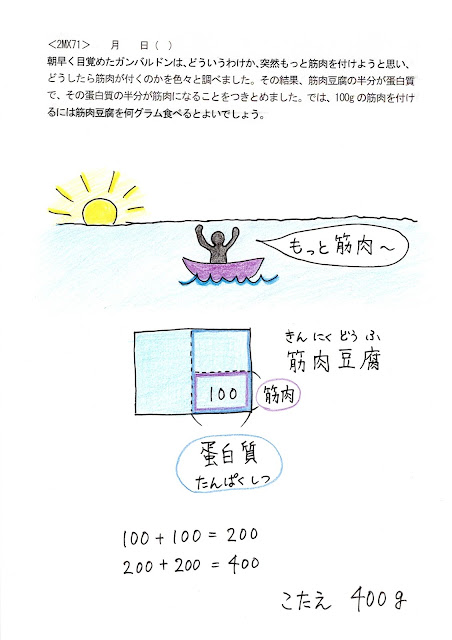 ＜2MX71＞　　月　　日（　）
朝早く目覚めたガンバルドンは、どういうわけか、突然もっと筋肉を付けようと思い、
どうしたら筋肉が付くのかを色々と調べました。その結果、筋肉豆腐の半分が蛋白質
で、その蛋白質の半分が筋肉になることをつきとめました。では、100gの筋肉を付け
るには筋肉豆腐を何グラム食べるとよいでしょう。
もっと筋肉～
きんにくどうふ
筋肉豆腐
100
筋肉
蛋白質
たんぱくしつ
100+100=200
200+200=400
こたえ　400g